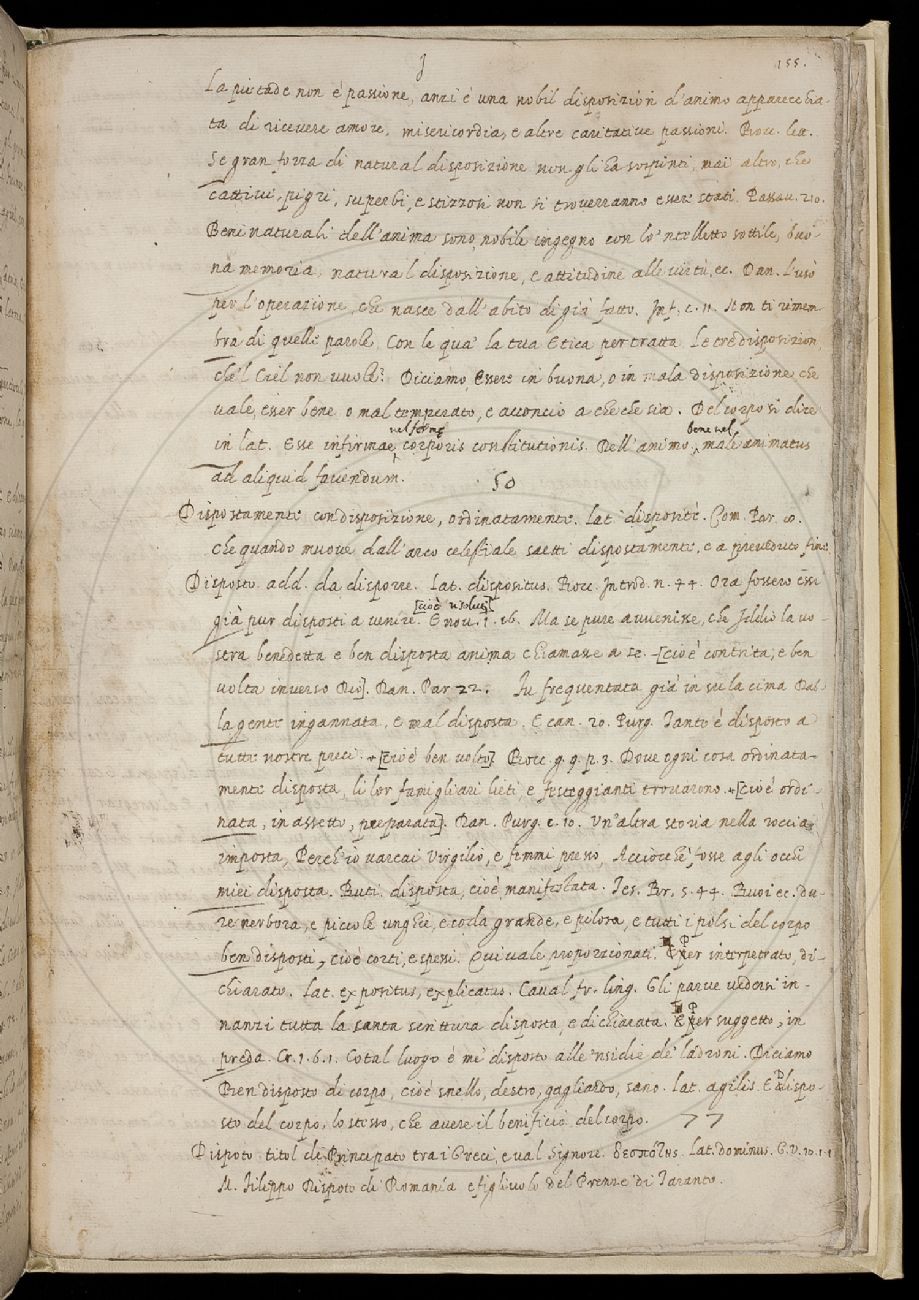 J
155.
La pietade non è passione, anzi è una nobil disposizion d'animo apparecchia-
ta di ricevere amore, misericordia, e altre caritative passioni. Bocc. let.
Se gran forza di natural disposizione non gli ha sospinti, mai altro, che
cattivi, pigri, superbi, e stizzosi non si troverranno esser stati. Passav. 210.
Beni naturali dell'anima sono, nobile ingegno con lo 'ntelletto sottile, buo-
na memoria, natural disposizione, e attitudine alle virtù, ec. Dan. l'usò
per l'operazione, che nasce dall'abito di già fatto. Inf. c. 11. Non ti rimem-
bra di quelle parole, Con le qua' la tua Etica pertratta Le tre disposizion,
che'l Ciel non vuole? Diciamo, Essere in buona, o in mala disposizione che
vale, esser bene o mal temperato, e acconcio a che che sia. Del corpo si dice
nel ferme bene vel
in lat. Esse infirmae corporis constitutionis. Dell'animo, male animatus
ad aliquid faciendum. 50
Dispostamente con disposizione, ordinatamente. Lat. dispositè. Com. Par. 8.
che quando muove dall'arco celestiale saetti dispostamente, e a preveduto fine.
Disposto. add. da disporre. Lat. dispositus. Bocc. Introd. n. 44. Ora fossero essi
[cioè risoluti]
già pur disposti a venire. E nov. 1. 16. Ma se pure avvenisse, che Iddio la vo-
stra benedetta e ben disposta anima chiamasse a se. [cioè contrita, e ben
volta inverso Dio]. Dan. Par 22. Fu frequentata già in su la cima Dal-
la gente ingannata, e mal disposta. E can. 20. Purg. Tanto è disposto a
tutte nostre prece. + [cioè ben volto]. Bocc. g. 9. p. 3. Dove ogni cosa ordinata-
mente disposta, li lor famigliari lieti, e festeggianti trovarono. + [cioè ordi-
nata, in assetto, preparata]. Dan. Purg. c. 10. Un'altra storia nella roccia
imposta, Perch'io varcai Virgilio, e femmi presso, Acciocchè fosse agli occhi
miei disposta. Buti. disposta, cioè manifestata. Tes. Br. 5. 44. Buoi ec. du-
re nerbora, e piccole unghie, e coda grande, e pilora, e tutti i polsi del corpo
ben disposti, cioè corti, e spessi. Qui vale proporzionati. Per interpetrato, di-
chiarato. Lat. expositus, explicatus. Caval. fr. ling. Gli parve vedersi in-
nanzi tutta la santa scrittura disposta, e dichiarata. Per suggetto, in
preda. Cr. 1. 6. 1. Cotal luogo è me' disposto alle 'nsidie de' ladroni. Diciamo
Ben disposto di corpo, cioè snello, destro, gagliardo, sano. Lat. agilis. E Dispo-
sto del corpo, lo stesso, che avere il benificio del corpo. 77
Dispoto. titol di Principato tra i Greci, e val Signore. δεσπότης. Lat. dominus. G. V. 10. 1. 1
M. Filippo Dispoto di Romania e figliuolo del Prenze di Taranto.